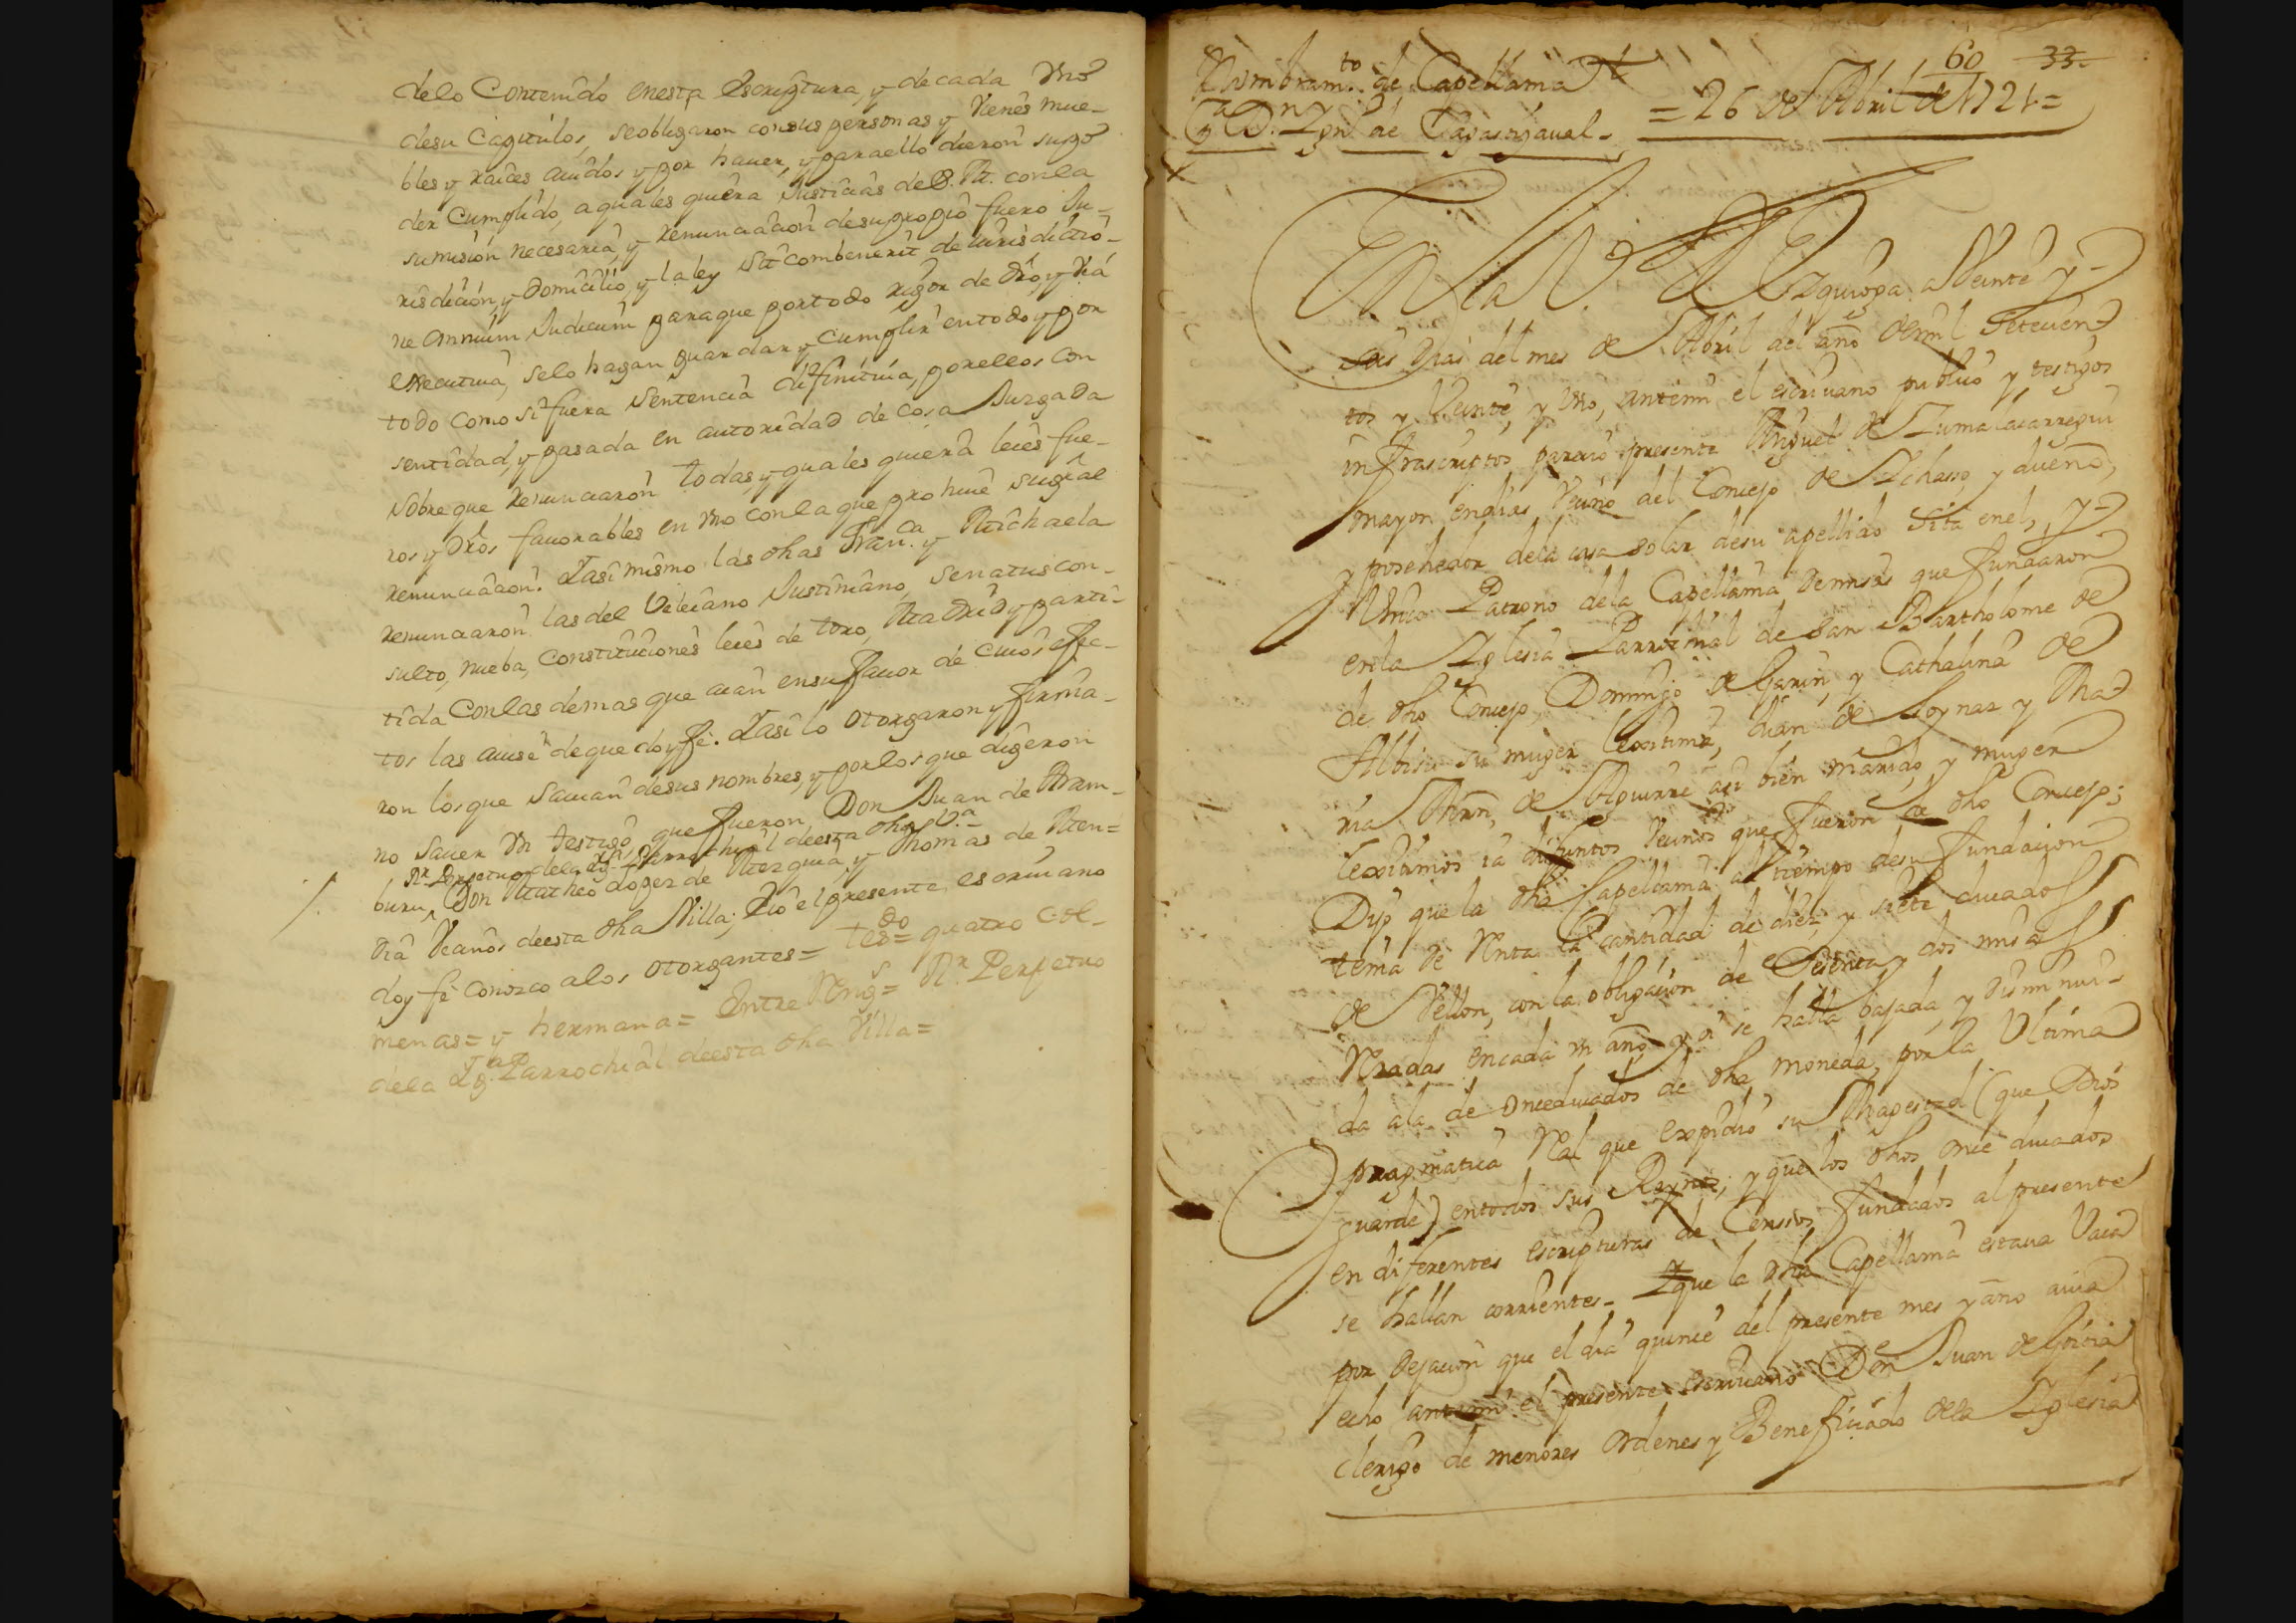 delo Contenido enesta Escriptura, y de cada Vno
desu Capitulos, se obligaron consus personas y Vienes mue-
bles y raices auidos y por hauer, y para ello dieron su po
der Cumplido, a quales quiera Justicias de S. M. con la
sumision necesaria, y renunciacion desu propio fuero Ju-
risdicion, y Domicilio, y la ley Sit combenerit de iurisdictio-
ne omnium Judicum para que por todo rigor de dro, y via
executiua, se lo hagan guardar y Cumplir en todo y por
todo como si fuera Sentencia difinitiua, por ellos con
sentidad, y pasada en autoridad de cosa Juzgada
Sobre que renunciaron todas, y quales quiera leies fue-
ros y dros fauorables en Vno con la que prohiue su gral
renunciacion. Y asi mismo las dhas Fran.ca y Michaela
renunciaron las del Veleiano Justiniano, Senatus con-
sulto, nueba, Constituciones leies de toro, Madrid y parti-
tida con las demas que aian en su fauor de cuios efec-
tos las auise de que doy fe. Y asi lo otorgaron y firma-
ron los que Sauian de sus nombres, y por los que digeron
no Sauer Vn testigo, que fueron Don Juan de Aram-
R.r Perpetuo dela Yg.a Parrochial de esta dha V.a
buru, Don Matheo Lopez de Mezquia, y Thomas de Men=
dia Vecinos de esta dha Villa; Y io el presente escriuano
doy fe conozco a los otorgantes= tes.do= quatro Col-
menas= y hermana= Entre Rengs= R.r Perpetuo
dela Yg.a Parrochial de esta dha Villa=
60 33.
Nombram.to de Capellania
= 26 de Abril de 1721 =
En la V.a de Zquioga a Veinte y
seis dias del mes de Abril del año de mil Setecien
tos y Veinte, y Vno, ante mi el escriuano publico y testigos
infrascriptos parecio presente Miguel de Zumalacarregui
mayor en dias Vecino del Concejo de Ychasso, y dueño,
y posehedor dela casa solar desu apellido Sita en el, y
Vnico Patrono dela Capellania de missas que fundaron
en la Yglesia Parrochial de San Bartholome de
de dho Concejo, Domingo de Garin, y Cathalina de
Albisu su muger lexitima, Juan de Loynaz y Ma
ria Mrn, de Aguirre asi bien marido, y muger
lexitimos ia difuntos Vecinos que fueron de dho Concejo;
Dijo que la dha Capellania al tiempo desu fundacion
tenia de Renta la cantidad de diez, y siete ducados
de Vellon, con la obligacion de Sesenta y dos misas
Rezadas en cada Vn año y oi se halla bajada, y disminui-
da ala de once ducados de dha moneda, por la Vltima
pragmatica Ral que expidio su Magestad (que Dios
guarde) en todos sus Reynos; y que los dhos once ducados
en diferentes escripturas de Censos fundados al presente
se hallan corrientes- Yque la dha Capellania estaua Vaca
por dejacion que el dia quince del presente mes y año auia
echo ante mi el presente escriuano Don Juan de Goitia
clerigo de menores Ordenes y Beneficiado dela Yglesia